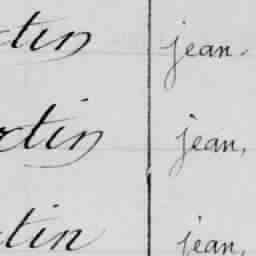 rtin jean.
rtin jean,
tin jean,